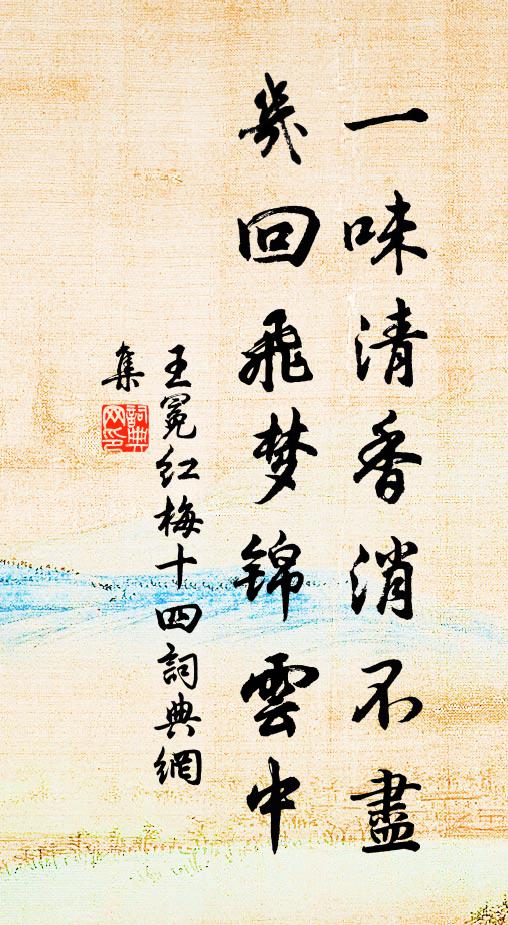 一味清香消不盡
幾回飛梦锦雲中
王冕红梅十四詞典網
集
詞典网印